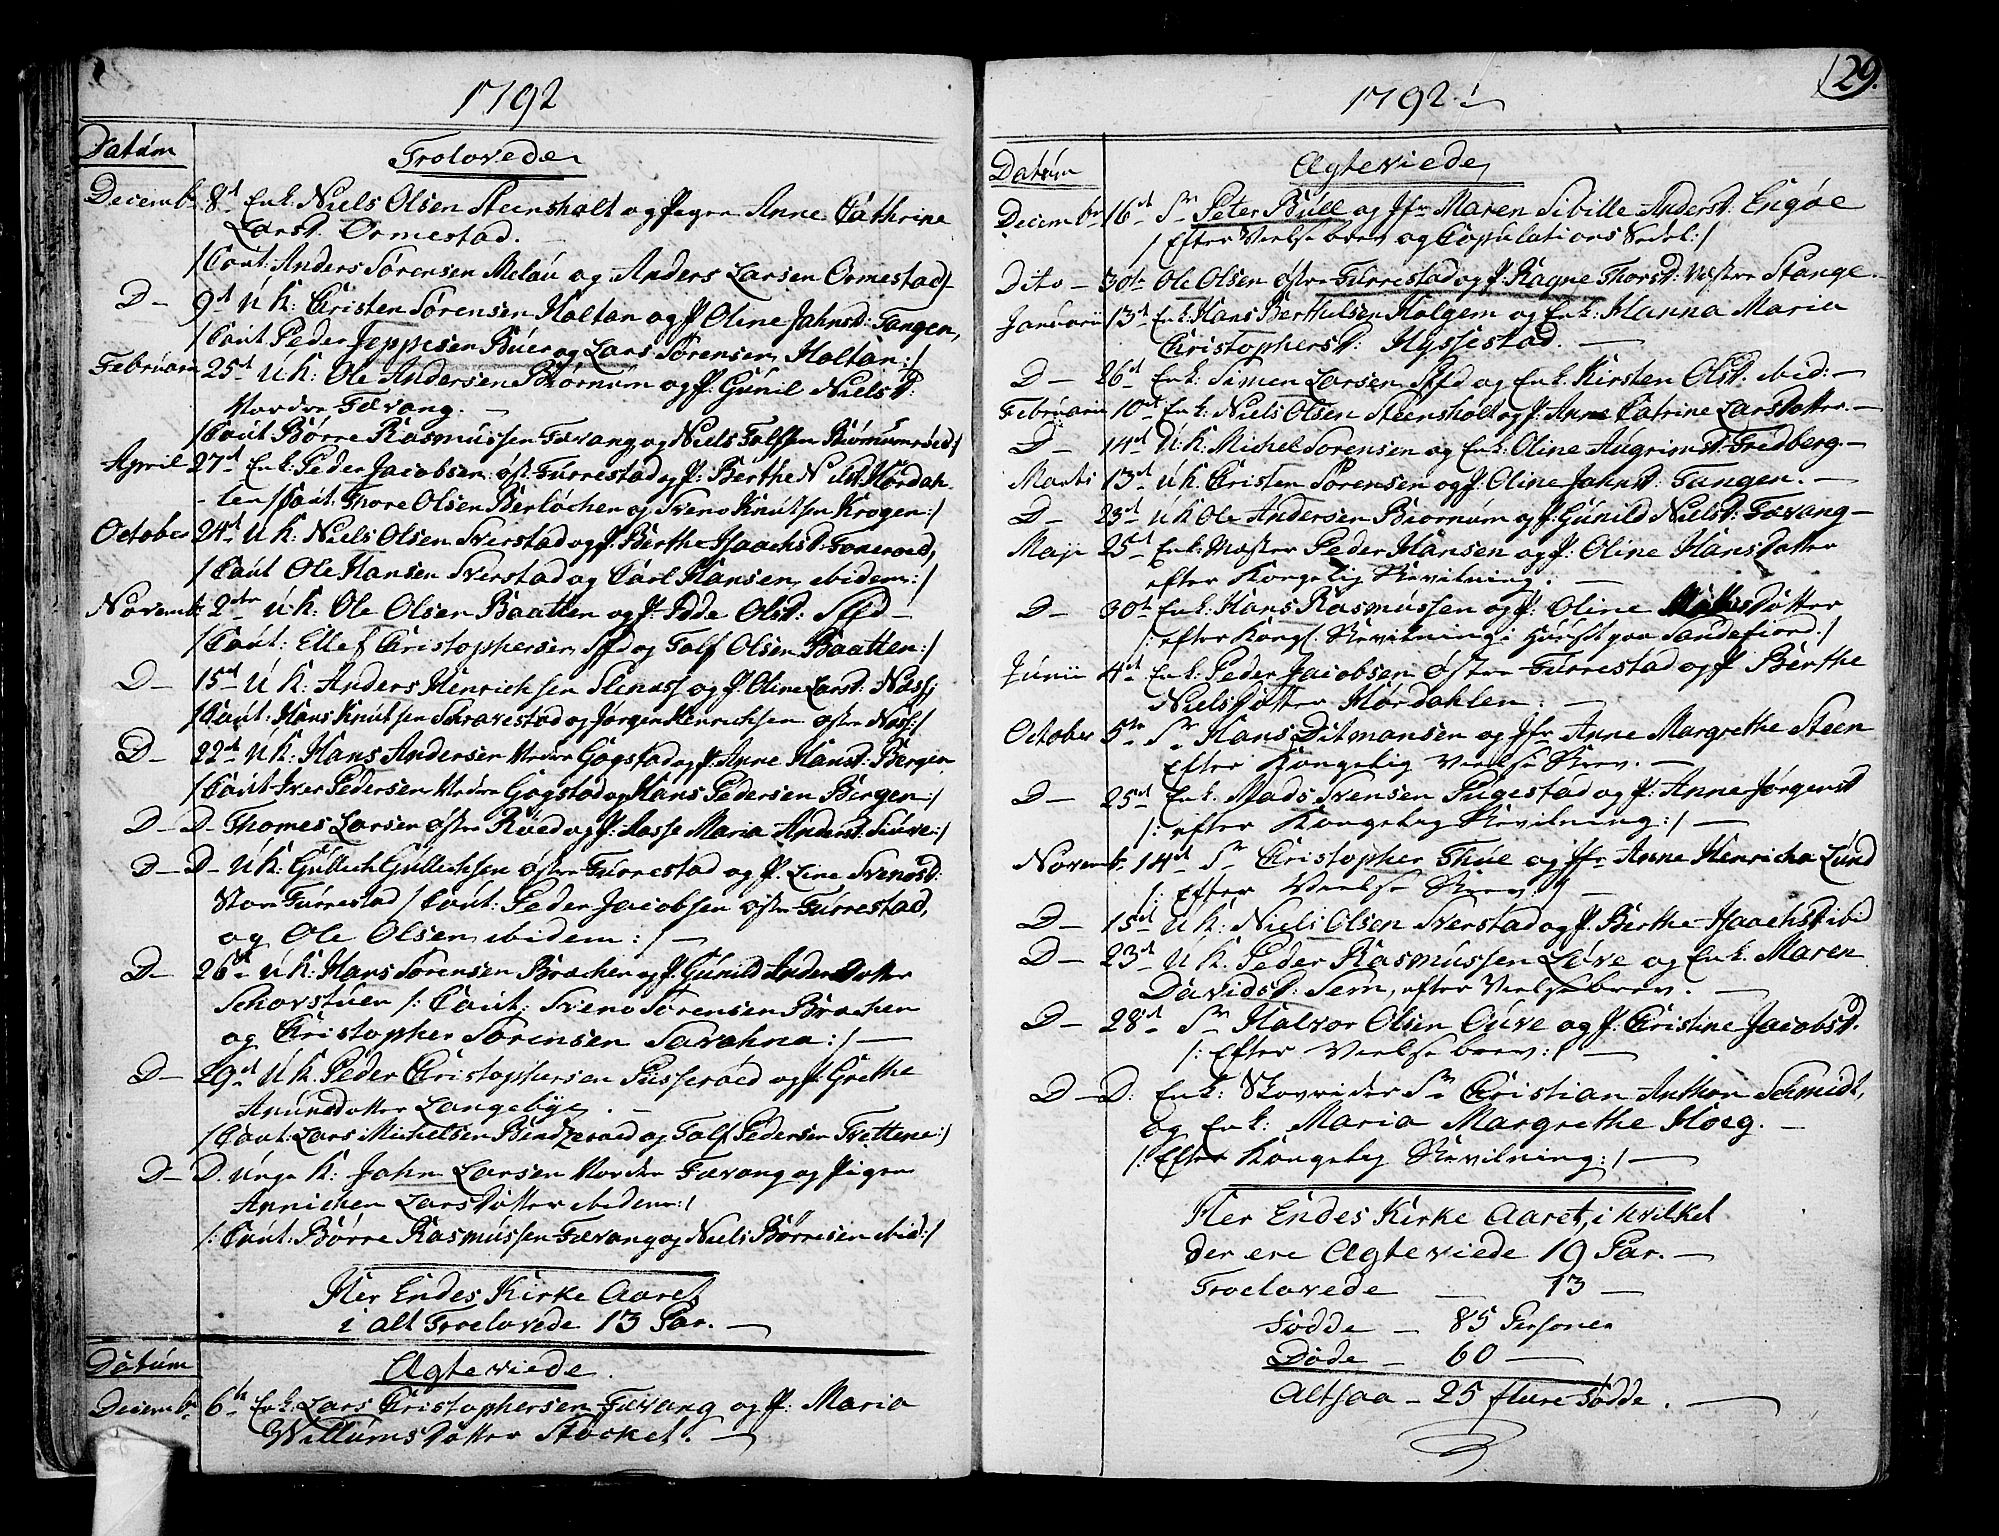 1792
Datum
Trolovede
Decembr 8d Enk: Niels Olsen Steensholt og Pigen Anne Cathrine
Larsd. Ormestad.
/Caut: Anders Sørensen Melau og Anders Larsen Ormestad/
D– 9d UK: Christen Sørensen Holtan og P: Oline Jahnsd: Tangen,
/Caut Peder Jeppesen Buer og Lars Sørensen Holtan:/
Februarii 25d UK: Ole Andersen Biørnum og P: Gunil Nielsd:
Nordre Fævang. –
/Caut Børre Rasmussen Fævang og Niels Tolfsen Biørnumrøed/
April 27d Enk: Peder Jacobsen øst: Furrestad og P: Berthe Nielsd: Hørdah-
-len /Caut: Thore Olsen Berløchen og Sveno Knutsen Krogen:/
October 24d UK: Niels Olsen Sverstad og P: Berthe Isaachsd: Fonerøed,
/Caut Ole Hansen Sverstad og Carl Hansen ibidem:/
Novemb: 2den UK: Ole Olsen Baatten og P: Idde Olsd: –
/Caut: Ellef Christophersen og Tolf Olsen Baatten:/
D– 15d UK: Anders Henrichsen Slenass og P: Oline Larsd: Nass;
/Caut: Hans Knutsen Schravestad og Jørgen Henrichsen østre Nass:/
D– 22d UK: Hans Andersen Nedre Gogstad og P: Anne Hansd: Bergen
/Caut Iver Pedersen Nedre Gogstad og Hans Pedersen Bergen:/
D– D– Thomes Larsen østre Røed og P: Aasse Maria Andersd:
D– D– UK: Gullich Gullichsen østre Furrestad og P: Line Svenosd:
Store Furrestad /Caut: Peder Jacobsen østre Furrestad,
og Ole Olsen ibidem:/ –
D– 26d UK: Hans Sørensen Brachen og P: Gunild Andersdotter
Schovstuen /: Caut: Sveno Sørensen Brachen
og Christopher Sørensen Savahna:/ –
D– 29d UK Peder Christophersen Pusserøed og P: Grethe
Amunsdotter Langebÿe. –
/Caut: Lars Michelsen Bindzerøed og Tolf Pedersen Trettene:/
D– D. Unge K: Jahn Larsen Nordre Fævang og Pigen
Annichen Larsdotter ibidem:/
/: Caut: Børre Rasmussen Fævang og Niels Børresen ibid:/
Her Endes Kirke Aaret
i alt Troelovede 13 Par. –
Datum
Ægteviede.
Decembr 6te Enk: Lars Christophersen Fævang og P: Maria
Willumsdotter Stocket. –
1792 : /–
129.
Datum
Ægteviede
Decembr 16d Sr Peter Bull og Jfr Maren Sibille Andersd: Engøe
/Efter Vielse brev og Copulations Sedel:/
Dito – 30te Ole Olsen østre Furrestad og P: Ragne Thorsd: Vestre Stange.
Januarii 13d Enk: Hans Berthelsen Holgem og Enk: Hanna Maria
Christophersd: Hyssestad. –
D– 26d Enk: Simen Larsen og Enk: Kirsten Olsd: ibid: –
Februarii 10d Enk: Niels Olsen Steensholt og P: Anne Catrine Larsdotter. –
D– 14d UK: Michel Sørensen og Enk: Oline Augrimsd: Fredberg. –
Marti 13d UK Christen Sørensen og P: Oline Jahnsd: Tangen. –
D– 23d UK Ole Andersen Biørnum og P: Gunild Nielsd: Fævang –
Maji 25d Enk: Mester Peder Hansen og P: Oline Hansdotter
efter Kongelig Bevilning. –
D– 30te Enk: Hans Rasmussen og P: Oline dotter
/: efter Kongl: Bevilning i Huuset paa Sandefiord:/
Junii 4d Enk: Peder Jacobsen østre Furrestad og P: Berthe
Nielsdotter Hørdahlen. –
October 5te Sr Hans Ditmansen og Jfr Anne Margrethe Steen
Efter Kongelig Vielse Brev. –
D– 25d Enk. Mads Svensen Pugestad og P: Anne Jørgensd
/: efter Kongelig Bevilning:/ –
Novemb: 14d Sr Christopher Thue og Jfr Anne Henricha Lund
/: Efter Vielse Brev:/ –
D– 15d UK: Niels Olsen Sverstad og P: Berthe Isaachsd: ibi:
D– 23d UK: Peder Rasmussen Løve og Enk: Maren
Davidsd: Sem, efter Vielse brev. –
D– 28d Sr Halvor Olsen Ouve og P: Christine Jacobsd.
/: Efter Vielse brev:/ –
D– D: Enk: Skovrider Sr Christian Anthon Schmidt,
og Enk: Maria Margrethe Hoeg. –
/: Efter Kongelig Bevilning:/ –
Her Endes Kirke Aaret, i hvilket
der ere Ægteviede 19 Par. –
Troelovede – 13 –
Fødde – 85 Personer
Døde – 60 –
Altsaa – 25 flere Fødde. –